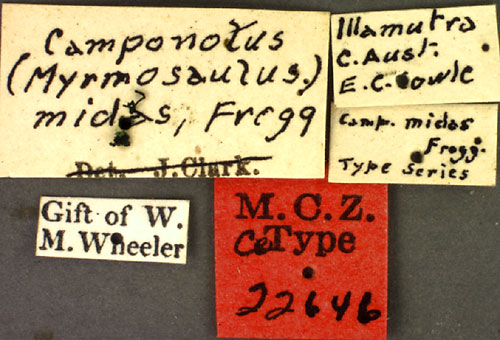 Camponotus
(Myrmosaulus.)
midas, Frogg
Det. J. Clark.
Illamutra
C. Aust.
E. C. Cowle
Camp. midas
Frogg.
Type Series
Gift of W.
M. Wheeler
M. C. Z.
CoType
22646